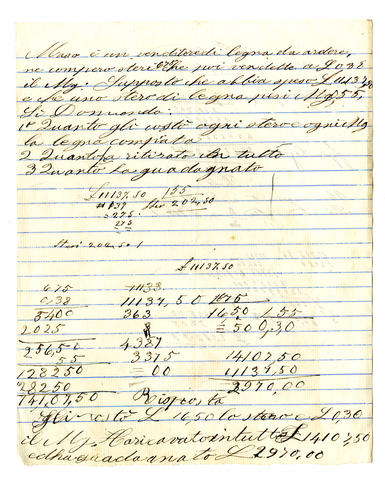 Maso è un venditore di legna da ardere,
ne comperò steri 675 che poi vendette a £ 0,38
il Mg. Supposto che abbia speso £ 11137,50
e che uno stero di legna pesi Mg 55,
Si Domanda:
1º Quanto gli costò ogni stero e ogni Mg
la legna comprata
2 Quanto ha ritirato in tutto
3 Quanto ha guadagnato
£ 11137,50 155
= 275 Steri 202,50
275
Steri 202,50 1
£ 11137,50
675
0,38 11137,50 675
5400 363 16,50 55
2025 500 0,30
256,50 4387
55 3375 14107,50
128250 = 00 11137,50
128250 2970,00
14107,50 Risposta
Gli costò £ 16,50 lo stero e £ 0,30
il Mg. Ha ricavato in tutto £ 14107,50
ed ha guadagnato £ 2970,00